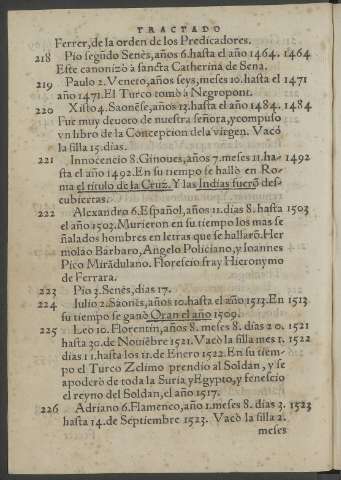 TRACTADO
Ferrer, de la orden de los Predicadores.
218 Pio segũdo Senès, años 6. hasta el año 1464. 1464
Este canonizò à sancta Catherina de Sena.
219 Paulo 2. Veneto, años seys, meses 10. hasta el 1471
año 1471. El Turco tomò à Negropont.
220 Xisto 4. Saonèse, años 13. hasta el año 1484. 1484
Fue muy deuoto de nuestra señora, y compuso
vn libro de la Concepcion dela virgen. Vacó
la silla 15. dias.
221 Innocencio 8. Ginoues, años 7. meses 11. ha- 1492
sta el año 1492. En su tiempo se hallò en Ro-
ma el titulo de la Cruz. Y las Indias fuerõ des-
cubiertas.
222 Alexandro 6. Español, años 11. dias 8. hasta 1503
el año 1503. Murieron en su tiempo los mas se
ñalados hombres en letras que se hallarõ. Her
molao Bàrbaro, Angelo Policiano, y Ioannes
Pico Mirãdulano. Florescio fray Hieronymo
de Ferrara.
223 Pio 3. Senès, dias 17.
224 Iulio 2. Saonès, años 10. hasta el año 1513. En 1513
su tiempo se ganò Oran el año 1509.
225 Leo 10. Florentin, años 8. meses 8. dias 20. 1521
hasta 30. de Nouiẽbre 1521. Vacò la silla mes 1. 1522
dias 11. hasta los 11. de Enero 1522. En su tiem-
po el Turco Zelimo prendio al Soldan, y se
apoderò de toda la Suria y Egypto, y fenescio
el reyno del Soldan, el año 1517.
226 Adriano 6. Flamenco, año 1. meses 8. dias 3. 1523
hasta 14. de Septiembre 1523. Vacò la silla 2.
meses